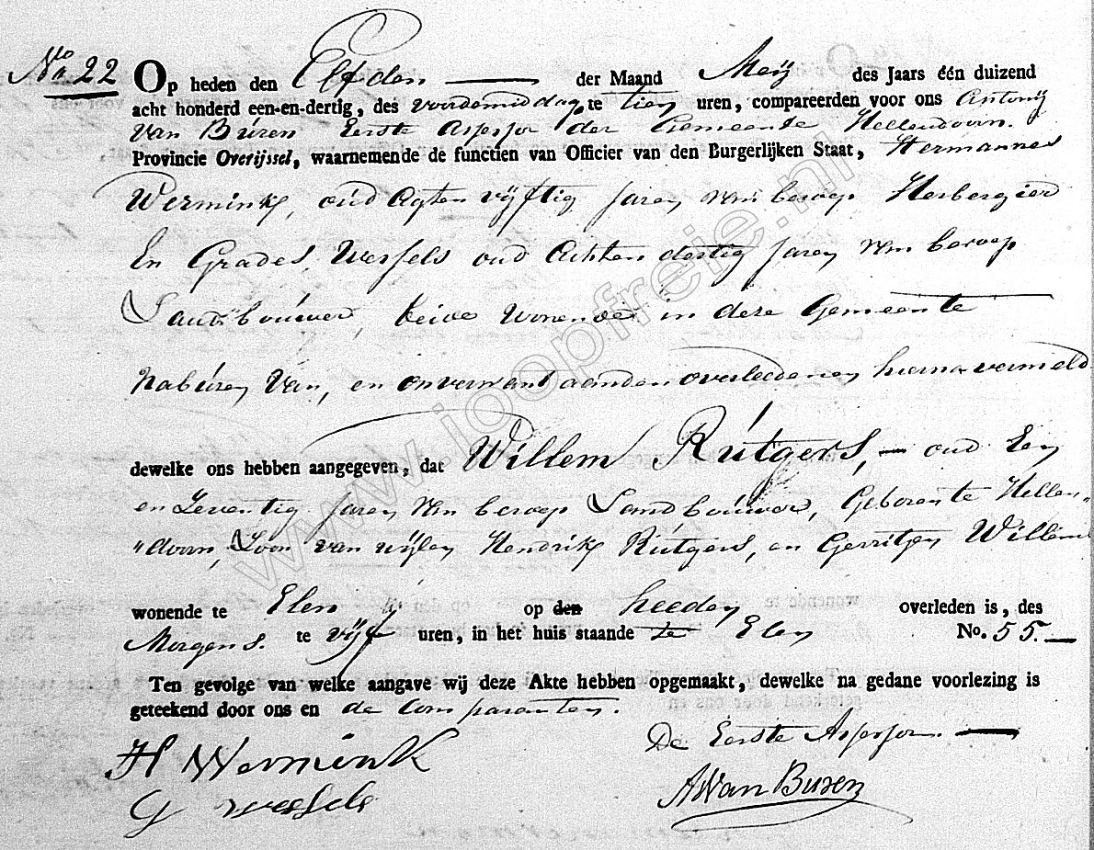 No 22 Op heden den Elfden der Maand Meij des Jaars één duizend
acht honderd een-en-dertig, des voordemiddag te tien uren, compareerden voor ons Antonij
van Buren Eerste Assessor der Gemeente Hellendoorn.
Provincie Overijssel, waarnemende de functien van Officier van den Burgerlijken Staat, Hermannes
Wermink, oud Agten vijftig Jaren van beroep Herbergier
En Grades Wessels oud Achten dertig Jaren van beroep
Landbouwer, beide wonende in deze Gemeente
Naburen van, en onverwant aan den overleedenen hierna vermeld
dewelke ons hebben aangegeven, dat Willem Rutgers, oud Een
en Zeventig Jaren van beroep Landbouwer, Geboren te Hellen-
"doorn, Zoon van wijlen Hendrik Rutgers, en Gerritjen Willems
wonende te Elen op den heeden overleden is, des
Morgens te vijf uren, in het huis staande te Elen No. 55.
Ten gevolge van welke aangave wij deze Akte hebben opgemaakt, dewelke na gedane voorlezing is
geteekend door ons en de Comparanten.
De Eerste Assessor.
H Wermink
G Wessels
AVan Buren
www.joopfreie.nl